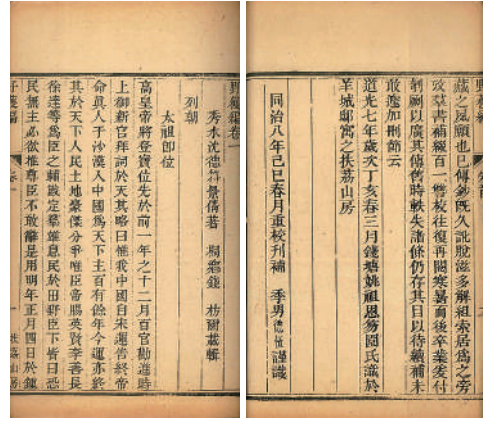 野獲編
藏之夙願也巳傳鈔既久訛脫滋多解組索居爲之旁
攷羣書補綴百一讐校往復再閱寒暑而後卒業爰付
剞劂以廣其傳舊時軼失諸條仍存其目以待續補未
敢遽加刪節云
道光七年歲次丁亥春三月錢塘姚祖恩笏園氏識於
羊城邸寓之扶荔山房
同治八年己巳春月重校刊補 季男德恆謹識
野獲編卷一
秀水沈德符景倩著 桐鄉錢 枋爾載輯
列朝
太祖卽位
高皇帝將登寶位先於前一年之十二月百官勸進時
上御新宮拜詞於天其略曰惟我中國自宋運告終帝
命眞人于沙漠入中國爲天下主百有餘年今運亦終
其於天下人民土地豪傑分爭唯臣帝賜英賢李善長
徐達等爲臣之輔戡定羣雄息民於田野臣下皆曰恐
民無主必欲推尊臣不敢辭是用明年正月四日於鍾
野獲編 卷一 一 扶荔山房